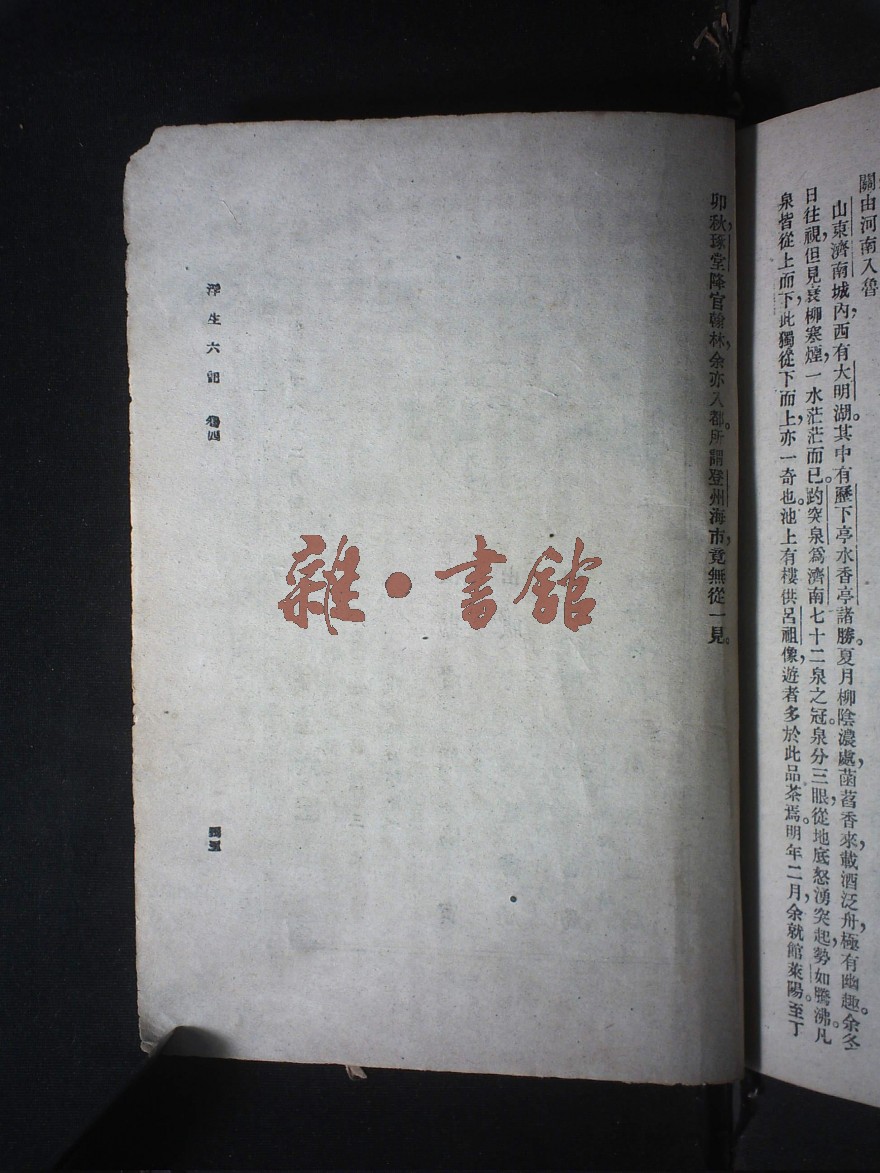 關由河南入魯
山東濟南城內，西有大明湖。其中有歷下亭水香亭諸勝。夏月柳陰濃處，菡萏香來，載酒泛舟，極有幽趣。余冬
日往視，但見衰柳寒煙，一水茫茫而已。趵突泉爲濟南七十二泉之冠。泉分三眼，從地底怒湧突起，勢如騰沸。凡
泉皆從上而下，此獨從下而上，亦一奇也。池上有樓，供呂祖像，遊者多於此品茶焉。明年二月，余就館萊陽。至丁
卯秋，琢堂降官翰林，余亦入都。所謂登州海市，竟無從一見。
浮生六記 卷四
四五
雜·書館